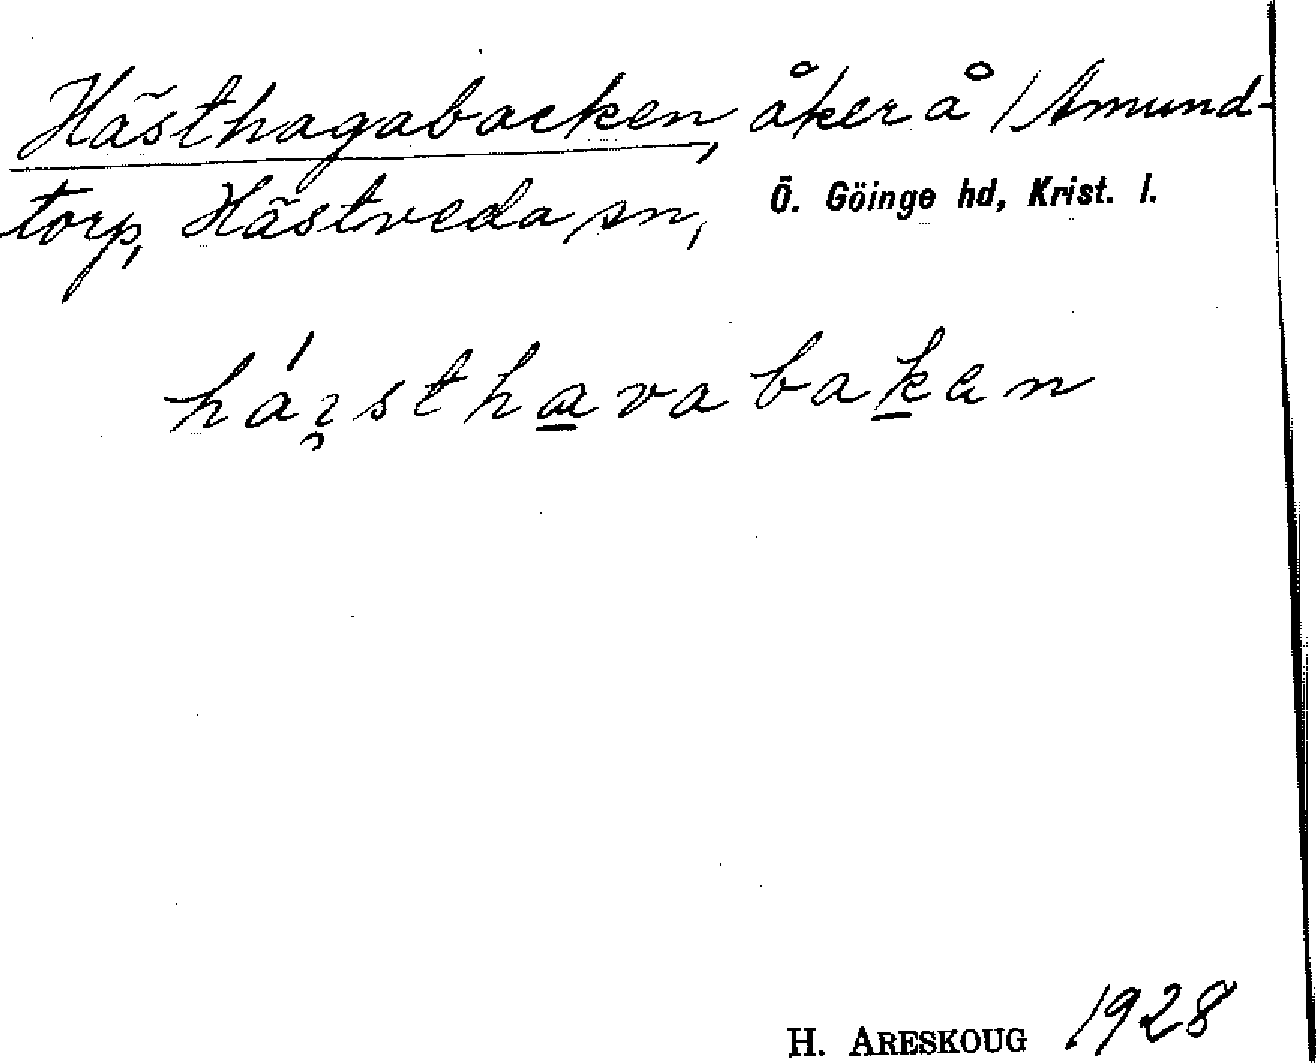 Hästhagabacken, åker å /Amund-
torp, Hästveda sn, Ö. Göinge hd, Krist. l.
H. ARESKOUG 1928